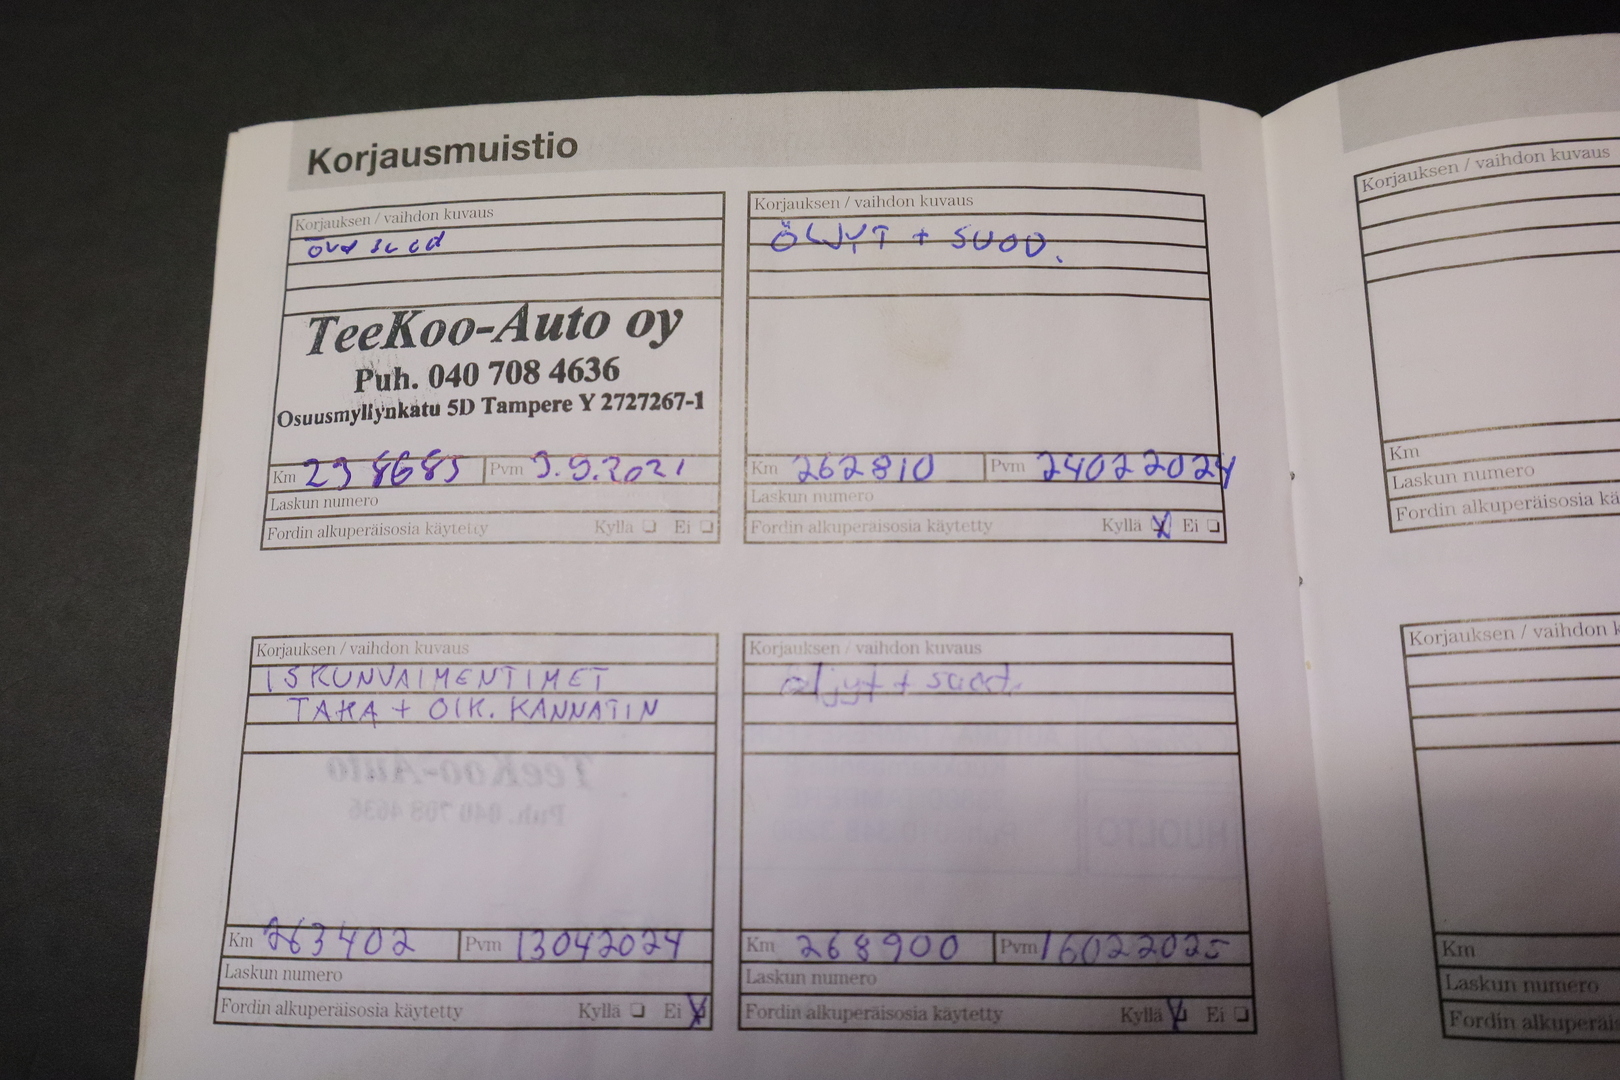 Korjausmuistio
Korjauksen / vaihdon kuvaus
TeeKoo-Auto oy
Puh. 040 708 4636
Osuusmyllynkatu 5D Tampere Y 2727267-1
Km 238685 Pvm 9.9.2021
Laskun numero
Fordin alkuperäisosia käytetty Kyllä Ei
Korjauksen / vaihdon kuvaus
ÖLJYT + SUOD.
Km 262810 Pvm 24022024
Laskun numero
Fordin alkuperäisosia käytetty Kyllä X Ei
Korjauksen / vaihdon kuvaus
ISKUNVAIMENTIMET
TAKA + OIK. KANNATIN
Km 263402 Pvm 13042024
Laskun numero
Fordin alkuperäisosia käytetty Kyllä Ei X
Korjauksen / vaihdon kuvaus
öljyt + suod.
Km 268900 Pvm 16022025
Laskun numero
Fordin alkuperäisosia käytetty Kyllä X Ei
Korjauksen / vaihdon kuvaus
Km
Laskun numero
Fordin alkuperäisosia kä
Korjauksen / vaihdon k
Km
Laskun numero
Fordin alkuperäis